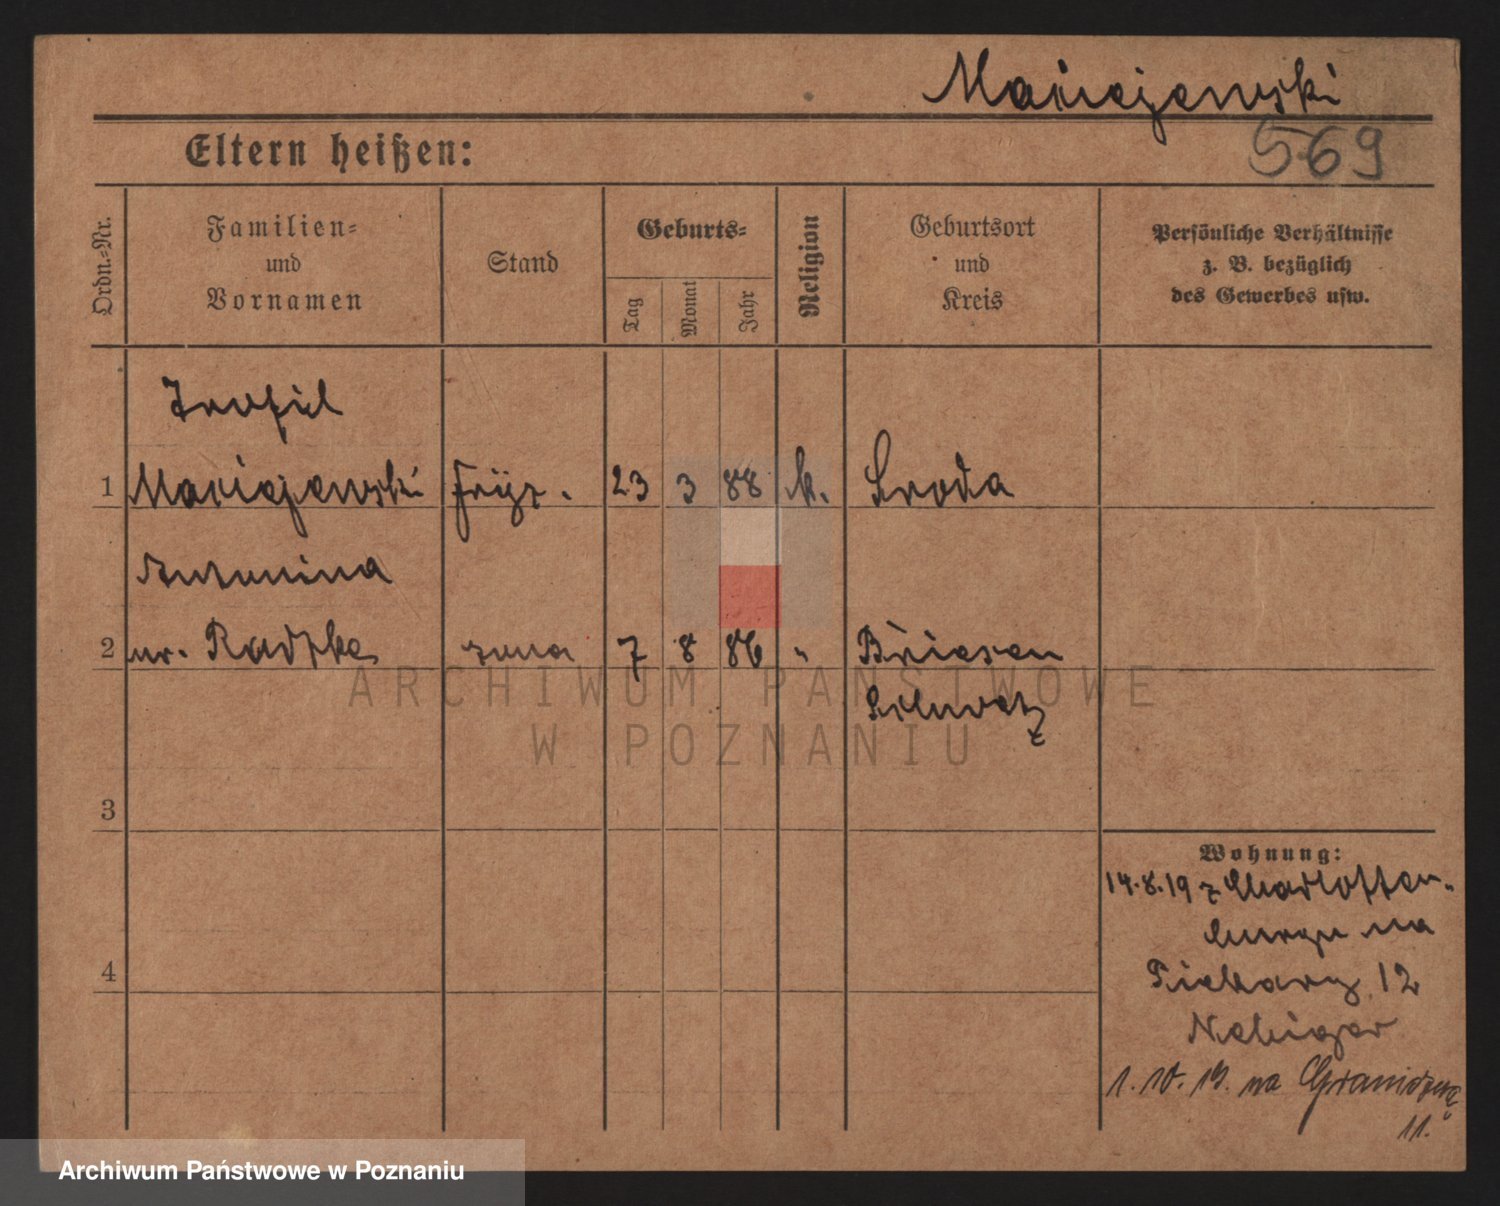 Maciejewski
569
Eltern heißen:
Ordn.-Nr.
Familien-
und
Vornamen
Stand
Geburts-
Tag
Monat
Jahr
Religion
Geburtsort
und
Kreis
Persönliche Verhältnisse
z. B. bezüglich
des Gewerbes usw.
Teofil
1 Maciejewski fryz. 23 3 88 k. Sroda
Antonina
2 ur. Radzka żona 7 8 86 " Briesen
ARCHIWUM PAŃSTWOWE
W POZNANIU
3
Wohnung:
14.8.19 z Charlotten-
burgu na
4
Piekary 12
1.10.19. na Graniczną
11.
Archiwum Państwowe w Poznaniu